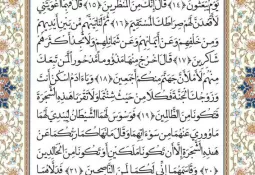 يَوْمِ يُبْعَثُونَ ﴿١٤﴾ قَالَ إِنَّكَ مِنَ الْمُنْظَرِينَ ﴿١٥﴾ قَالَ فَبِمَا أَغْوَيْتَنِي
لَأَقْعُدَنَّ لَهُمْ صِرَاطَكَ الْمُسْتَقِيمَ ﴿١٦﴾ ثُمَّ لَآتِيَنَّهُمْ مِنْ بَيْنِ أَيْدِيهِمْ
وَمِنْ خَلْفِهِمْ وَعَنْ أَيْمَانِهِمْ وَعَنْ شَمَائِلِهِمْ وَلَا تَجِدُ أَكْثَرَهُمْ
شَاكِرِينَ ﴿١٧﴾ قَالَ اخْرُجْ مِنْهَا مَذْءُومًا مَدْحُورًا لَمَنْ تَبِعَكَ
مِنْهُمْ لَأَمْلَأَنَّ جَهَنَّمَ مِنْكُمْ أَجْمَعِينَ ﴿١٨﴾ وَيَا آدَمُ اسْكُنْ أَنْتَ
وَزَوْجُكَ الْجَنَّةَ فَكُلَا مِنْ حَيْثُ شِئْتُمَا وَلَا تَقْرَبَا هَذِهِ الشَّجَرَةَ
فَتَكُونَا مِنَ الظَّالِمِينَ ﴿١٩﴾ فَوَسْوَسَ لَهُمَا الشَّيْطَانُ لِيُبْدِيَ لَهُمَا
مَا وُورِيَ عَنْهُمَا مِنْ سَوْآتِهِمَا وَقَالَ مَا نَهَاكُمَا رَبُّكُمَا عَنْ
هَذِهِ الشَّجَرَةِ إِلَّا أَنْ تَكُونَا مَلَكَيْنِ أَوْ تَكُونَا مِنَ الْخَالِدِينَ
﴿٢٠﴾ وَقَاسَمَهُمَا إِنِّي لَكُمَا لَمِنَ النَّاصِحِينَ ﴿٢١﴾ فَدَلَّاهُمَا